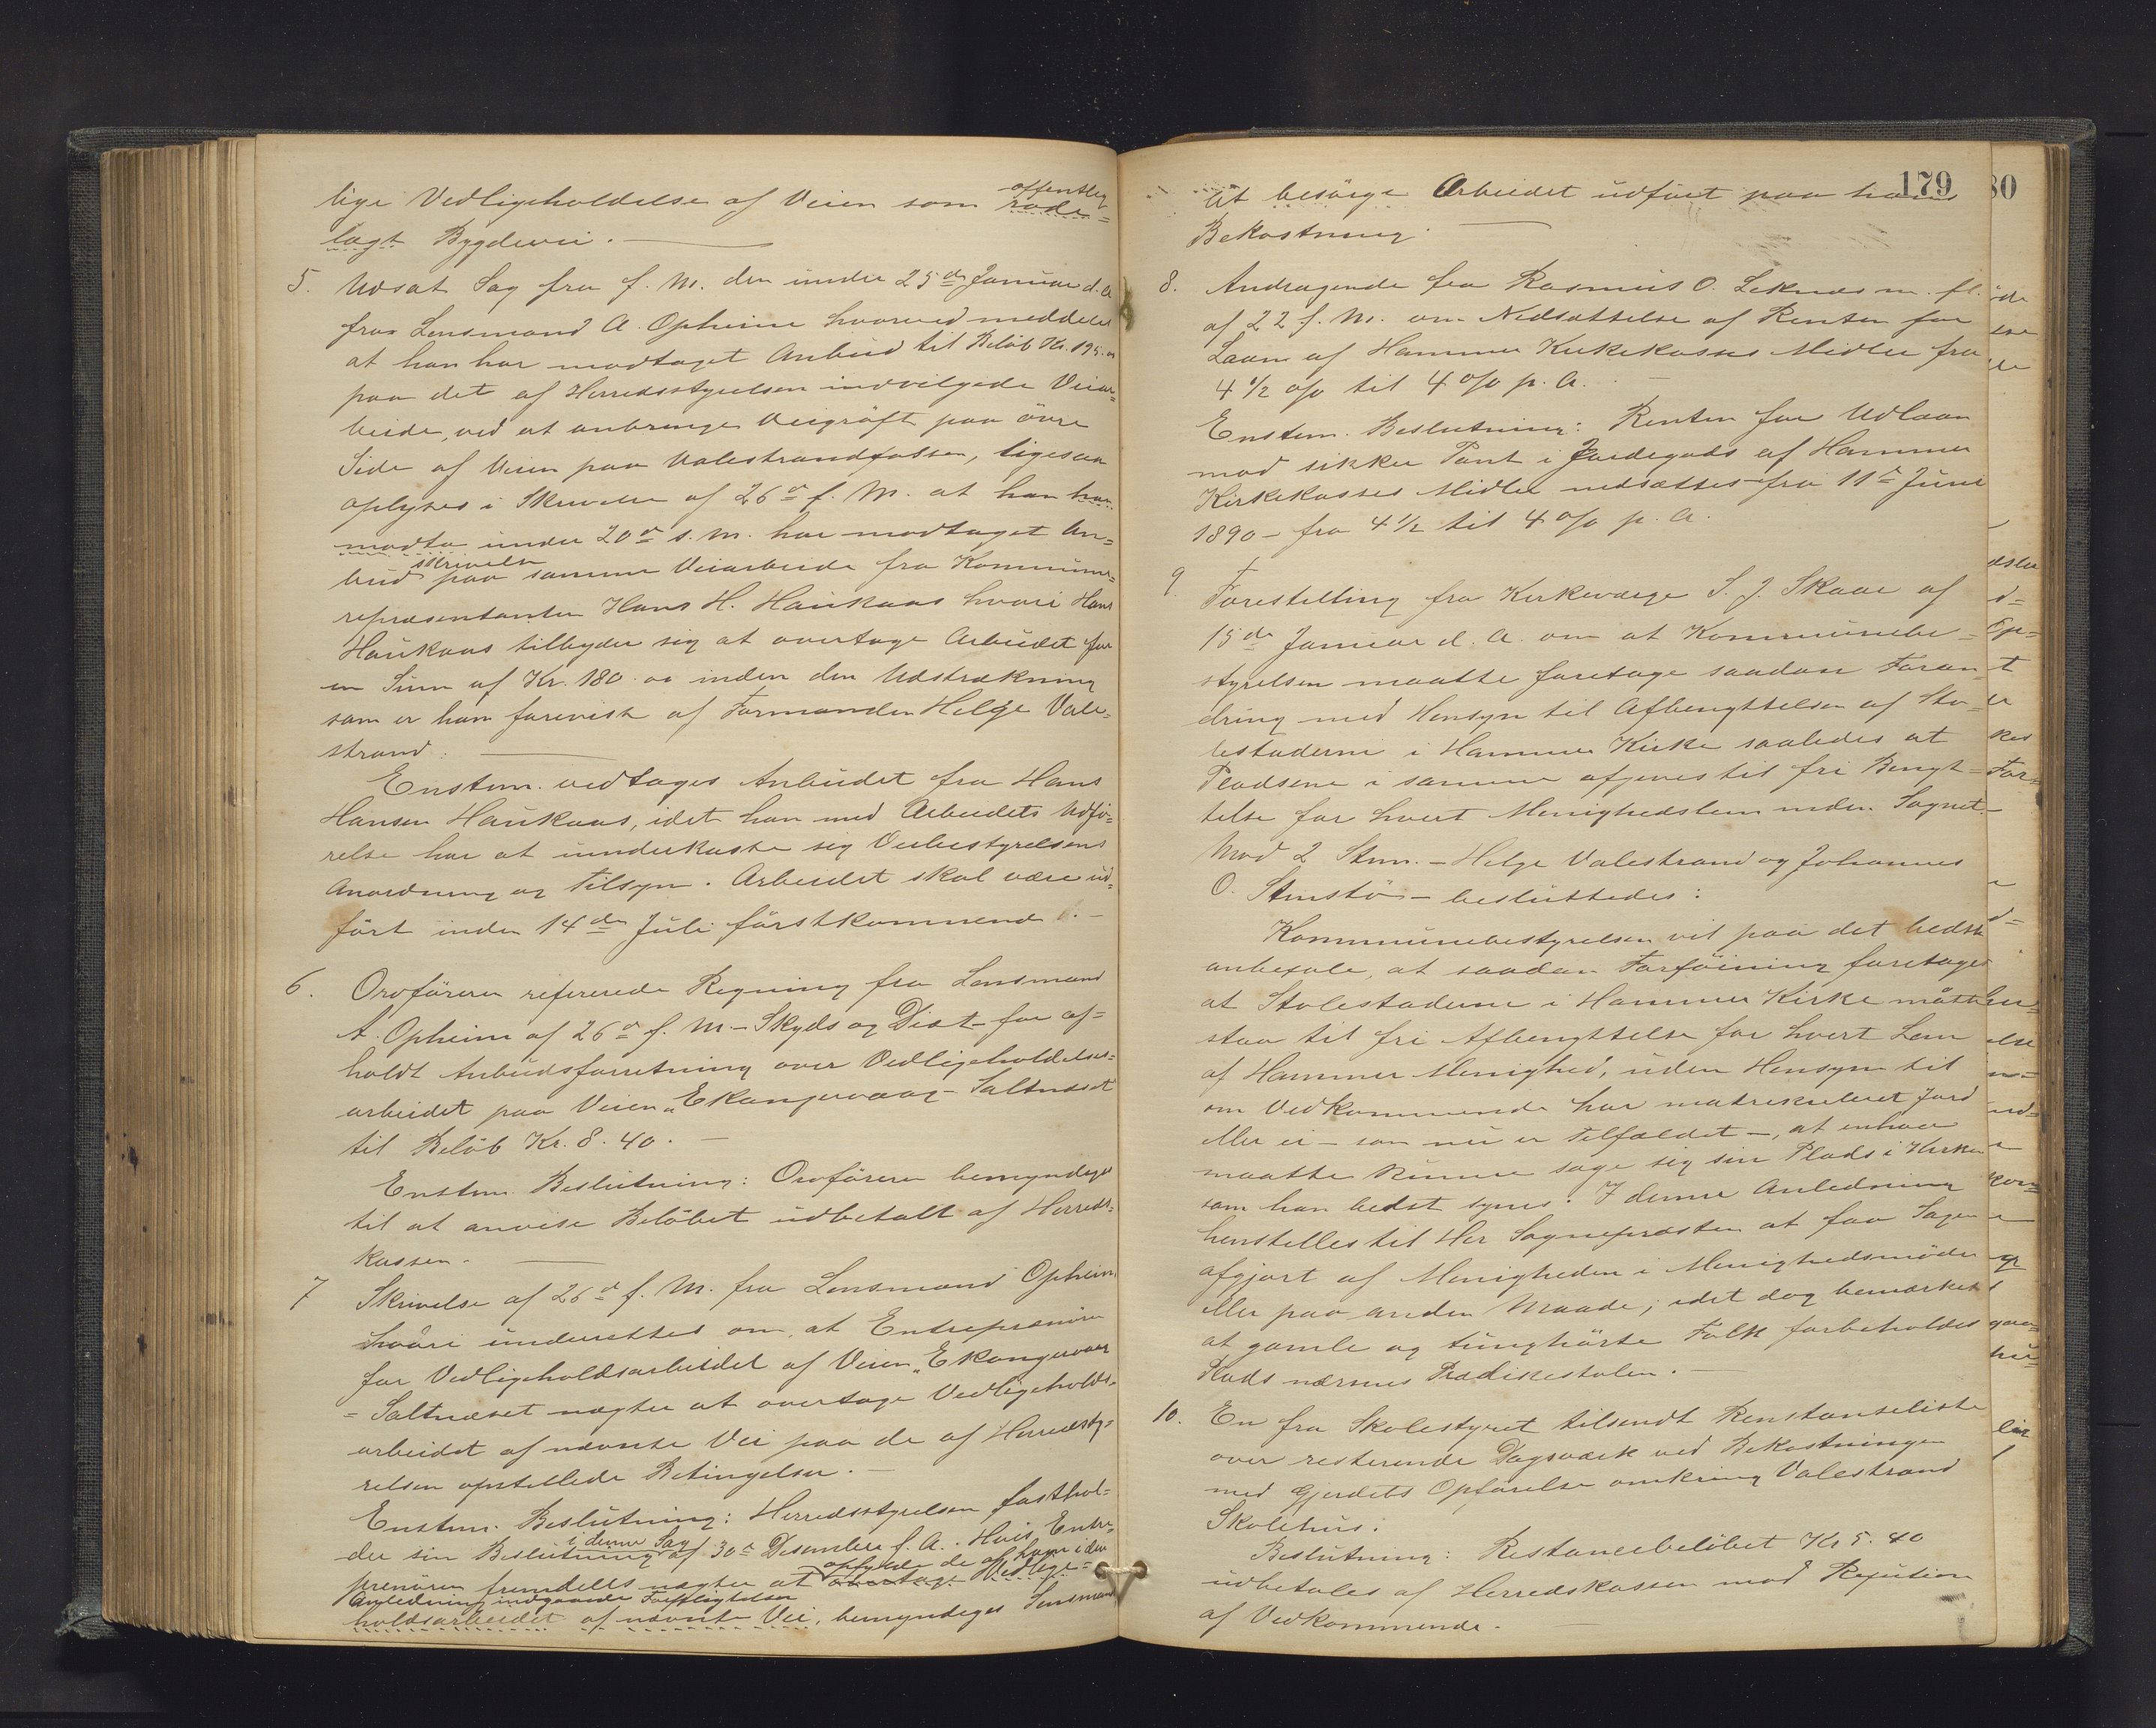 lige Vedligeholdelse af Veien som offentlig rode=
lagt Bygdevei.
5. Udsat Sag fra f. M. den under 25de Januar d. A
fra Lensmand A. Opheim hvorved meddeles
at han har modtaget Anbud til Beløb Kr. 195.00
paa det af Herredsstyrelsen indvilgede Veiar=
beide, ved at anbringe Veigrøft paa övre
Side af Veien paa Valestrandfossen, ligesaa
oplyses i Skrivelse af 26de f. M. at han han
modto under 20de s. M. har modtaget An=
bud skrivelse paa samme Veiarbeide fra Kommune=
repræsentanten Hans H. Haukaas hvori Hans
Haukaas tilbyder sig at overtage Arbeidet for
en Sum af Kr. 180.00 inden den Udstrækning
som er ham forevist af Formanden Helge Vale=
strand.
Enstem. vedtages Anbudet fra Hans
Hansen Haukaas, idet han med Arbeidets Udfø=
relse har at underkaste sig Veibestyrelsens
Anordning og Tilsyn. Arbeidet skal være ud=
ført inden 14de Juli førstkommende.
6. Ordføreren refererede Regning fra Lensmand
A. Opheim af 26de f. M. - Skyds og Diæt - for af=
holdt Anbudsforretning over Vedligeholdelses=
arbeidet paa Veien "Ekangervaag - Saltnæset
til Beløb Kr. 8.40.
Enstem. Beslutning: Ordføreren bemyndiges
til at anvise Beløbet udbetalt af Herreds=
kassen.
7 Skrivelse af 26de f. M. fra Lensmand Opheim
hvori underettes om, at Entreprenøren
for Vedligeholdsarbeidet af Veien "Ekangervaag
= Saltnæset nægter at overtage Vedligeholds=
arbeidet af nævnte Vei paa de af Herredssty=
relsen opstillede Betingelser.
Enstem. Beslutning: Herredsstyrelsen fasthol=
der sin Beslutning i denne Sag af 30te Desember f. A. Hvis Entre=
prenøren fremdeles nægter at overtage Vedlige= opfylde de af ham i den
Anledning indgaaede Forpligtelser
holdsarbeidet af nævnte Vei, bemyndiges Lensmand
179
80
at besørge Arbeidet udført paa hans
Bekostning.
8. Andragende fra Rasmus O. Leknæs m. fl.
af 22 f. M. om Nedsættelse af Renten for
Laan af Hammer Kirkekasses Midler fra
4 1/2 o/o til 4 o/o p. A.
Enstem. Beslutning: Renten for Udlaan
mod sikker Pant i Jordegods af Hammer
Kirkekasses Midler nedsættes fra 11te Juni
1890 - fra 4 1/2 til 4 o/o p. A.
9. Forestilling fra Kirkeværge S. J. Skaar af
15de Januar d. A. om at Kommunebe=
styrelsen maatte foretage saadan Foran=
dring med Hensyn til Afbenyttelsen af Sto=
lestaderne i Hammer Kirke saaledes at
Pladsene i samme afgives til fri Benyt=
telse for hvert Menighedslem inden Sognet.
Mod 2 Stem. - Helge Valestrand og Johannes
O. Stenstø - besluttedes:
Kommunebestyrelsen vil paa det bedste
anbefale, at saadan Forføining foretages
at Stolestaderne i Hammer Kirke måtte
staa til fri Afbenyttelse for hvert Lem
af Hammer Menighed, uden Hensyn til
om Vedkommende har matrikuleret Jord
eller ei - som nu er Tilfældet -, at enhver
maatte kunne søge sig sin Plads i Kirken
som han bedst synes. I denne Anledning
henstilles til Her Sognepræsten at faa Sagen
afgjort af Menigheden i Menighedsmøde
eller paa anden Maade; idet dog bemærkes
at gamle og tunghørte Folk forbeholdes
Plads nærmes Prædikestolen.
10. En fra Skolestyret tilsendt Restanseliste
over resterende Dagsværk ved Bekostningen
med Gjerdets Opførelse omkring Valestrand
Skolehus.
Beslutning: Restancebeløbet Kr 5.40
udbetales af Herredskassen mod Refusion
af Vedkommende.